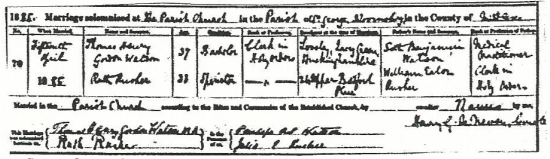 1885. Marriage solemnized at the Parish Church in the Parish of St George Bloomsbury in the County of
No. When Married. Name and Surname. Age. Condition. Rank or Profession. Residence at the time of Marriage. Father's Name and Surname. Rank or Profession of Father.
70 Fifteenth April 1885 Thomas Henry Gordon Watson 37 Bachelor Clerk in Holy Orders Lacey Green Buckinghamshire Scott Benjamin Watson Medical Practitioner
Ruth Rusher 33 Spinster Upper Bedford Place William Eaton Rusher Clerk in Holy Orders
Married in the Parish Church according to the Rites and Ceremonies of the Established Church, by or after Banns by me,
Harry Curate
This Marriage was solemnized between us, Thomas Henry Gordon Watson M.A.
Ruth Rusher
in the Presence of us, Watson
Julia Rusher